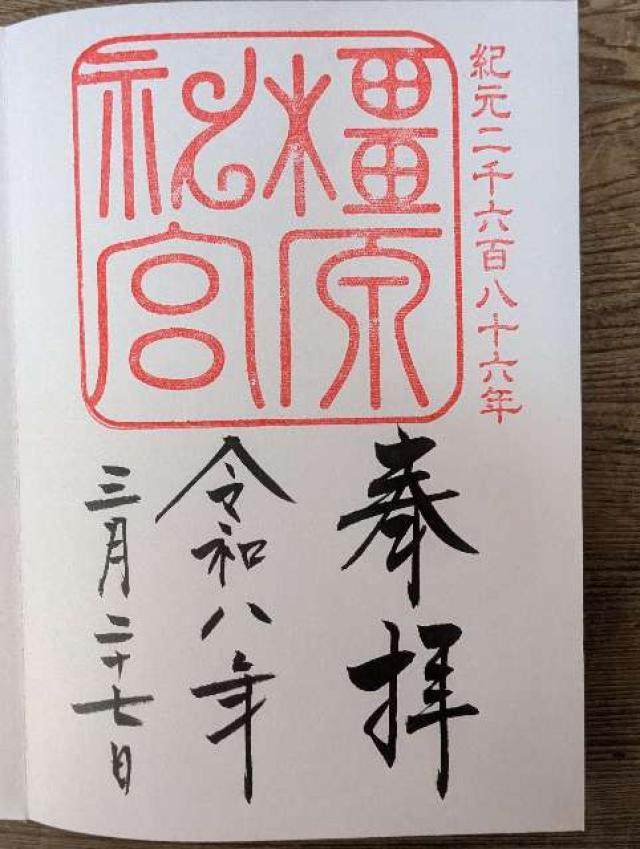 紀元二千六百八十六年
橿原神宮
奉拝
令和八年
三月二十七日